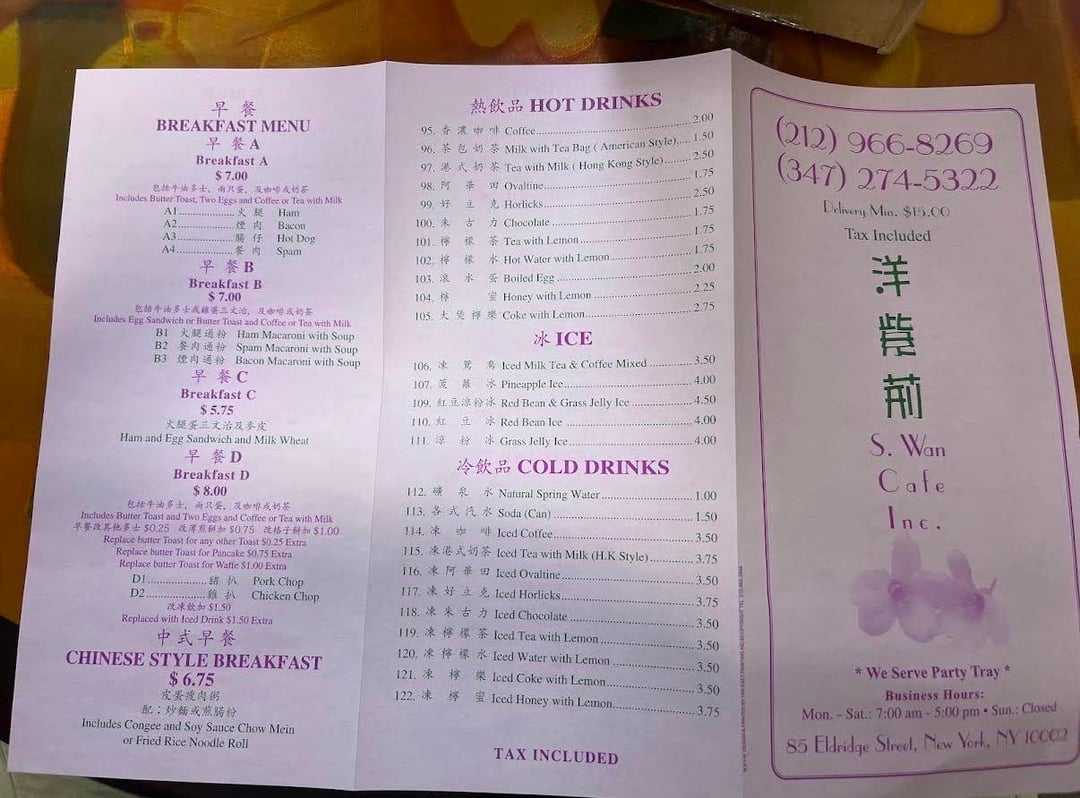 早餐
BREAKFAST MENU
早餐A
Breakfast A
$ 7.00
包括牛油多士，兩只蛋，及咖啡或奶茶
Includes Butter Toast, Two Eggs and Coffee or Tea with Milk
A1....................火 腿 Ham
A2....................煙 肉 Bacon
A3....................腸 仔 Hot Dog
A4....................餐 肉 Spam
早餐B
Breakfast B
$ 7.00
包括牛油多士或雞蛋三文治，及咖啡或奶茶
Includes Egg Sandwich or Butter Toast and Coffee or Tea with Milk
B1 火腿通粉 Ham Macaroni with Soup
B2 餐肉通粉 Spam Macaroni with Soup
B3 煙肉通粉 Bacon Macaroni with Soup
早餐C
Breakfast C
$ 5.75
火腿蛋三文治及麥皮
Ham and Egg Sandwich and Milk Wheat
早餐D
Breakfast D
$ 8.00
包括牛油多士，兩只蛋，及咖啡或奶茶
Includes Butter Toast and Two Eggs and Coffee or Tea with Milk
早餐改其他多士 $0.25 改薄煎餅加 $0.75 改格子餅加 $1.00
Replace butter Toast for any other Toast $0.25 Extra
Replace butter Toast for Pancake $0.75 Extra
Replace butter Toast for Waffe $1.00 Extra
D1....................豬 扒 Pork Chop
D2....................雞 扒 Chicken Chop
改凍飲加 $1.50
Replaced with Iced Drink $1.50 Extra
中式早餐
CHINESE STYLE BREAKFAST
$ 6.75
皮蛋瘦肉粥
配：炒麵或煎腸粉
Includes Congee and Soy Sauce Chow Mein
or Fried Rice Noodle Roll
熱飲品 HOT DRINKS
95. 香濃咖啡 Coffee....................2.00
96. 茶包奶茶 Milk with Tea Bag ( American Style).....1.50
97. 港式奶茶 Tea with Milk ( Hong Kong Style).......2.50
98. 阿華田 Ovaltine....................1.75
99. 好立克 Horlicks....................2.50
100. 朱古力 Chocolate....................1.75
101. 檸檬茶 Tea with Lemon....................1.75
102. 檸檬水 Hot Water with Lemon....................1.75
103. 滾水蛋 Boiled Egg....................2.00
104. 檸蜜 Honey with Lemon....................2.25
105. 大煲檸樂 Coke with Lemon....................2.75
冰 ICE
106. 凍鴛鴦 Iced Milk Tea & Coffee Mixed..........3.50
107. 茨蘿冰 Pineapple Ice....................4.00
109. 紅豆涼粉冰 Red Bean & Grass Jelly Ice..........4.50
110. 紅豆冰 Red Bean Ice....................4.00
111. 涼粉冰 Grass Jelly Ice....................4.00
冷飲品 COLD DRINKS
112. 礦泉水 Natural Spring Water....................1.00
113. 各式汽水 Soda (Can)....................1.50
114. 凍咖啡 Iced Coffee....................3.50
115. 凍港式奶茶 Iced Tea with Milk (H.K Style)..........3.75
116. 凍阿華田 Iced Ovaltine....................3.50
117. 凍好立克 Iced Horlicks....................3.75
118. 凍朱古力 Iced Chocolate....................3.50
119. 凍檸檬茶 Iced Tea with Lemon....................3.50
120. 凍檸檬水 Iced Water with Lemon....................3.50
121. 凍檸樂 Iced Coke with Lemon....................3.50
122. 凍檸蜜 Iced Honey with Lemon....................3.75
TAX INCLUDED
(212) 966-8269
(347) 274-5322
Delivery Min. $15.00
Tax Included
洋
紫
荊
S. Wan
Cafe
Inc.
* We Serve Party Tray *
Business Hours:
Mon. - Sat.: 7:00 am - 5:00 pm • Sun.: Closed
85 Eldridge Street, New York, NY 10002